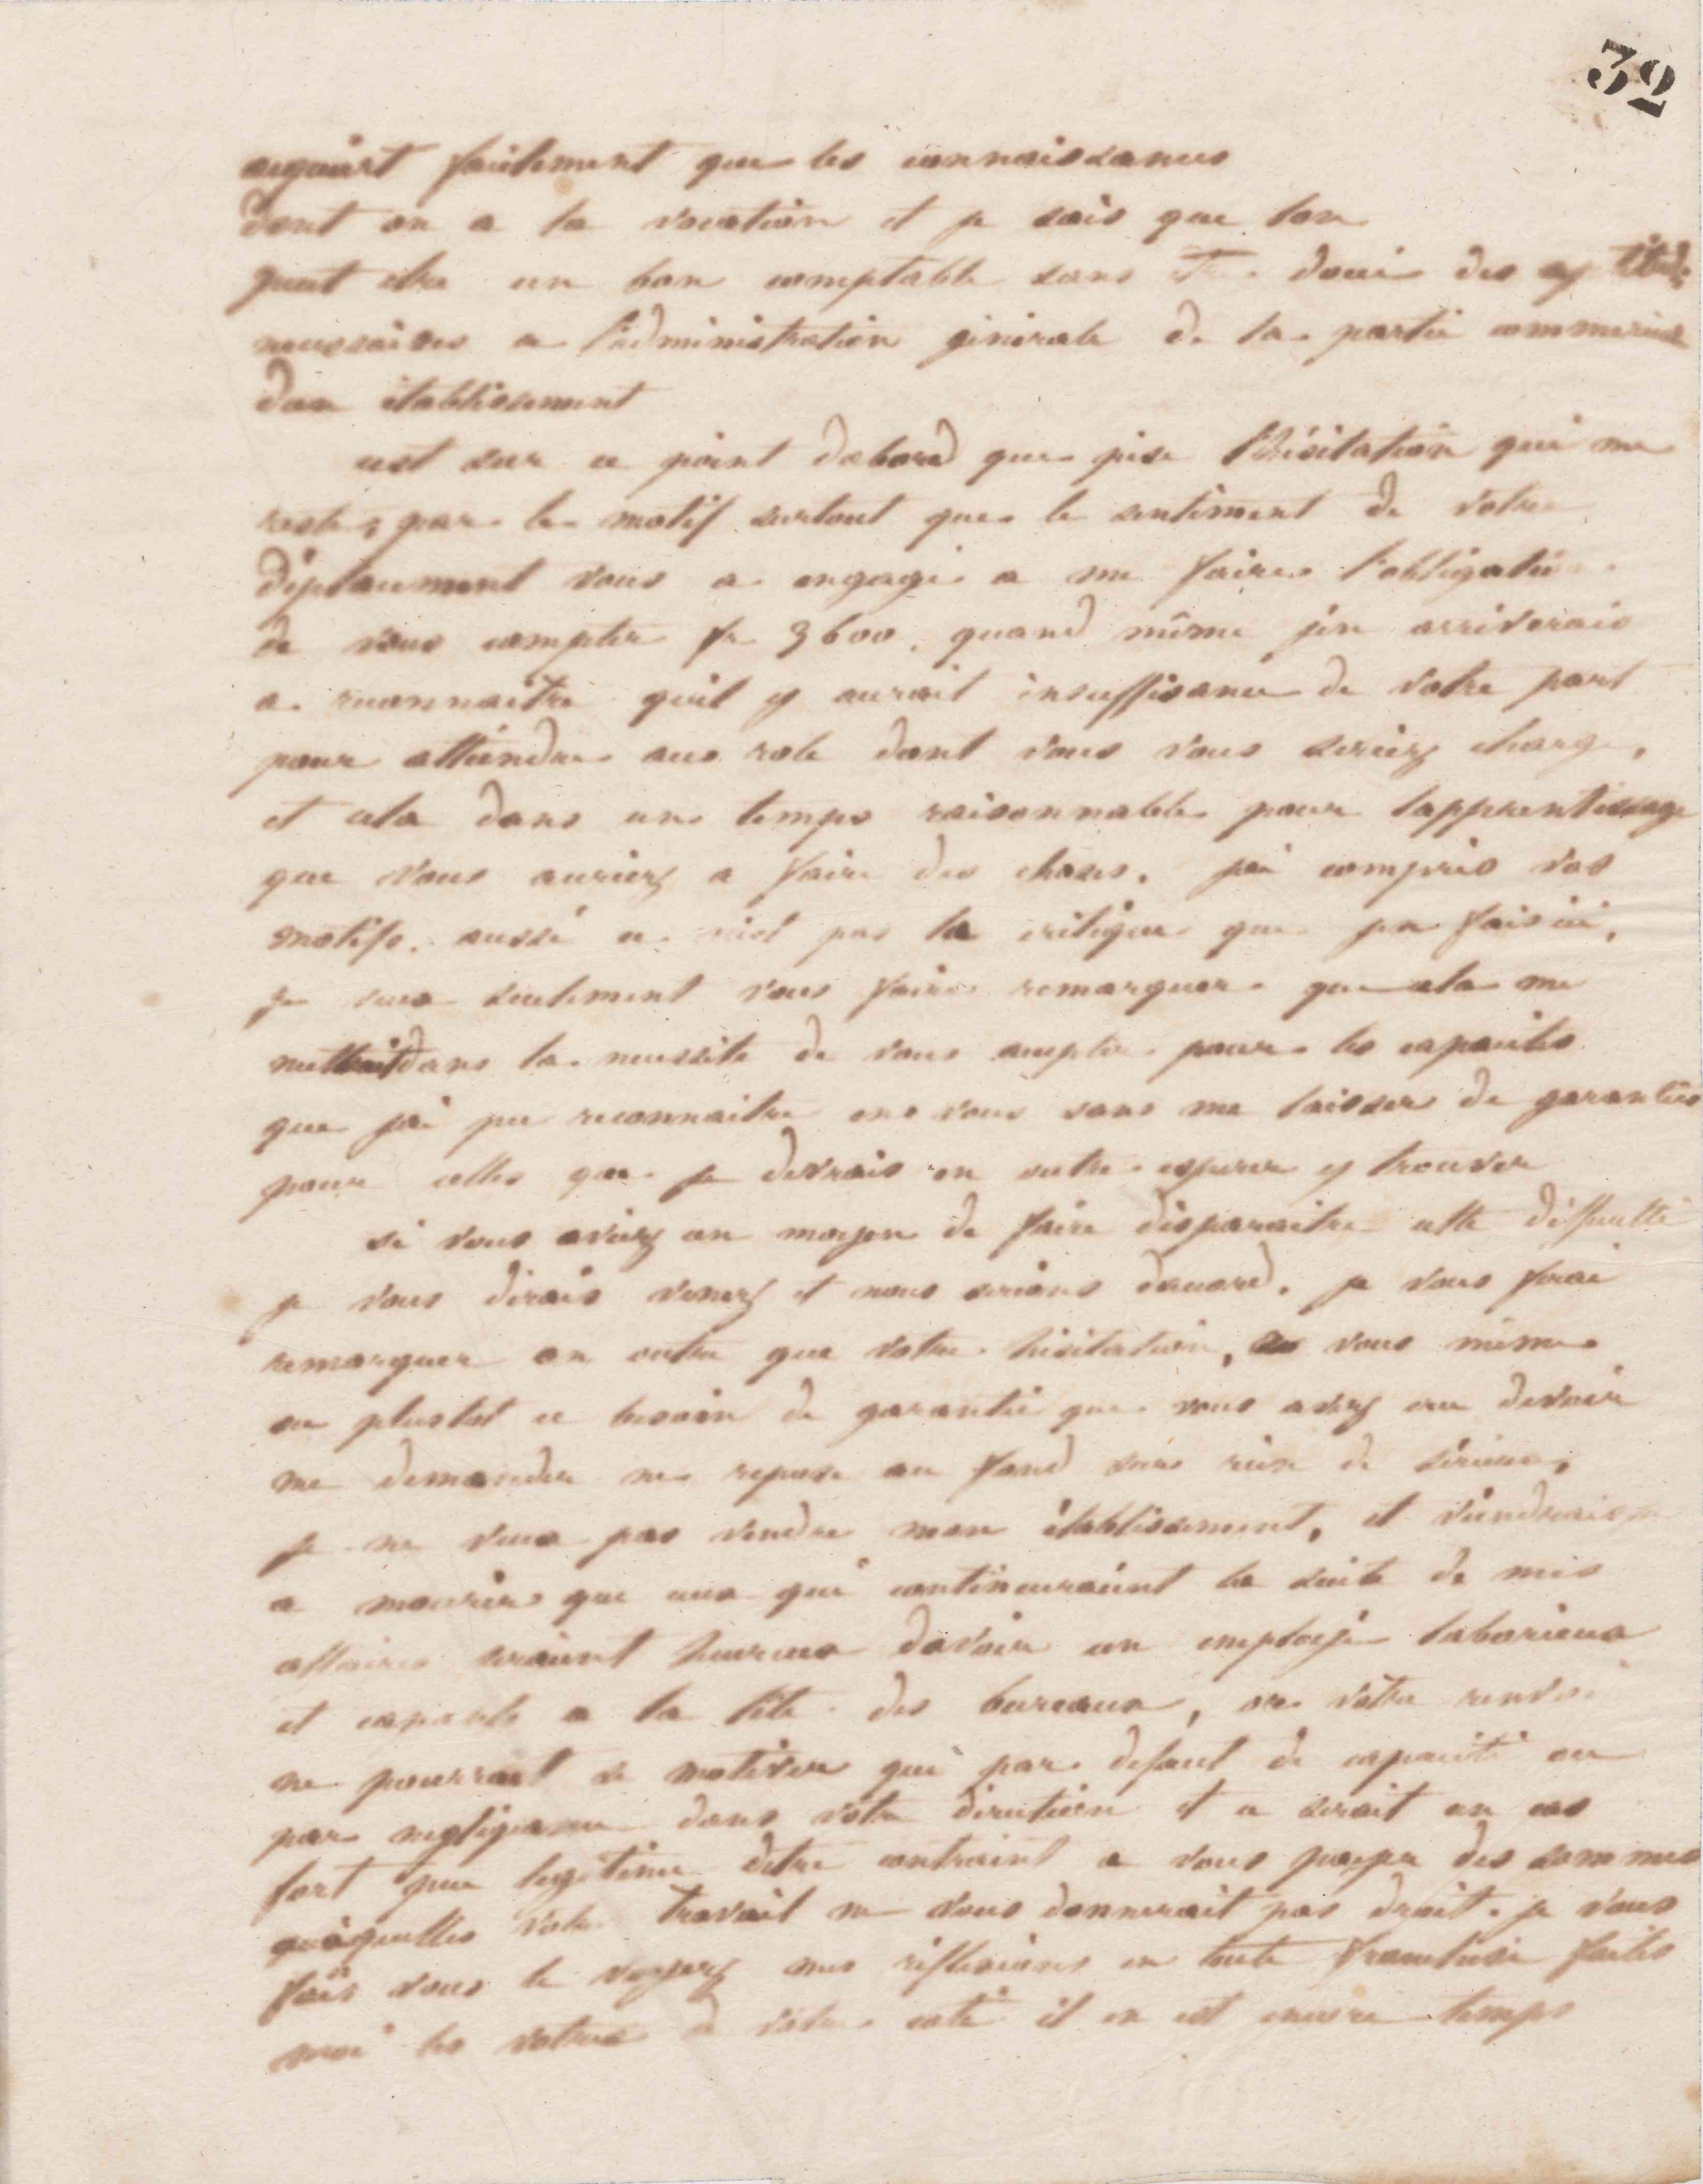 32
acquiert facilement que les connaissances
dont on a la vocation et je sais que lon
peut etre un bon comptable sans etre doué des aptitudes
necessaires a l'administration génirale de la partie commerciale
dun établissement
cest sur ce point dabord que pèse l'hésitation qui me
reste, par le motif surtout que le sentiment de votre
déplacement vous a engagé a me faire l'obligation
de vous compter fr 3600. quand même j'en arriverais
a reconnaitre qu'il y aurait insuffisance de votre part
pour atteindre au role dont vous vous seriez chargé,
et cela dans un temps raisonnable pour lapprentissage
que vous auriez a faire des choses. j'ai compris vos
motifs. aussi ce n'est pas la critique que j'en fais ici,
je veux seulement vous faire remarquer que cela me
mettrait dans la necessité de vous accepter pour les capacités
que j'ai pu reconnaitre en vous sans me laisser de garanties
pour celles que je devrais en outre esperer y trouver
si vous aviez un moyen de faire disparaitre cette difficulté
je vous dirais venez et nous serions daccord. je vous ferai
remarquer en outre que votre hésitation, vous même
ou plustot ce besoin de garantie que vous avez cru devoir
me demander ne repose au fond sur rien de sérieux,
je ne veux pas vendre mon établissement, et viendrais je
a mourir que ceux qui continueraient la suite de mes
affaires seraient heureux davoir un employé laborieux
et capable a la tête des bureaux, or votre renvoi
ne pourrait se motiver que par defaut de capacité ou
par negligeance dans votre direction et ce serait un cas
fort peu legitime detre contraint a vous payer des sommes
auxquelles votre travail ne vous donnerait pas droit. je vous
fais vous le voyez mes réflexions en toute franchise faites
moi les votres de votre coté il en est encore temps